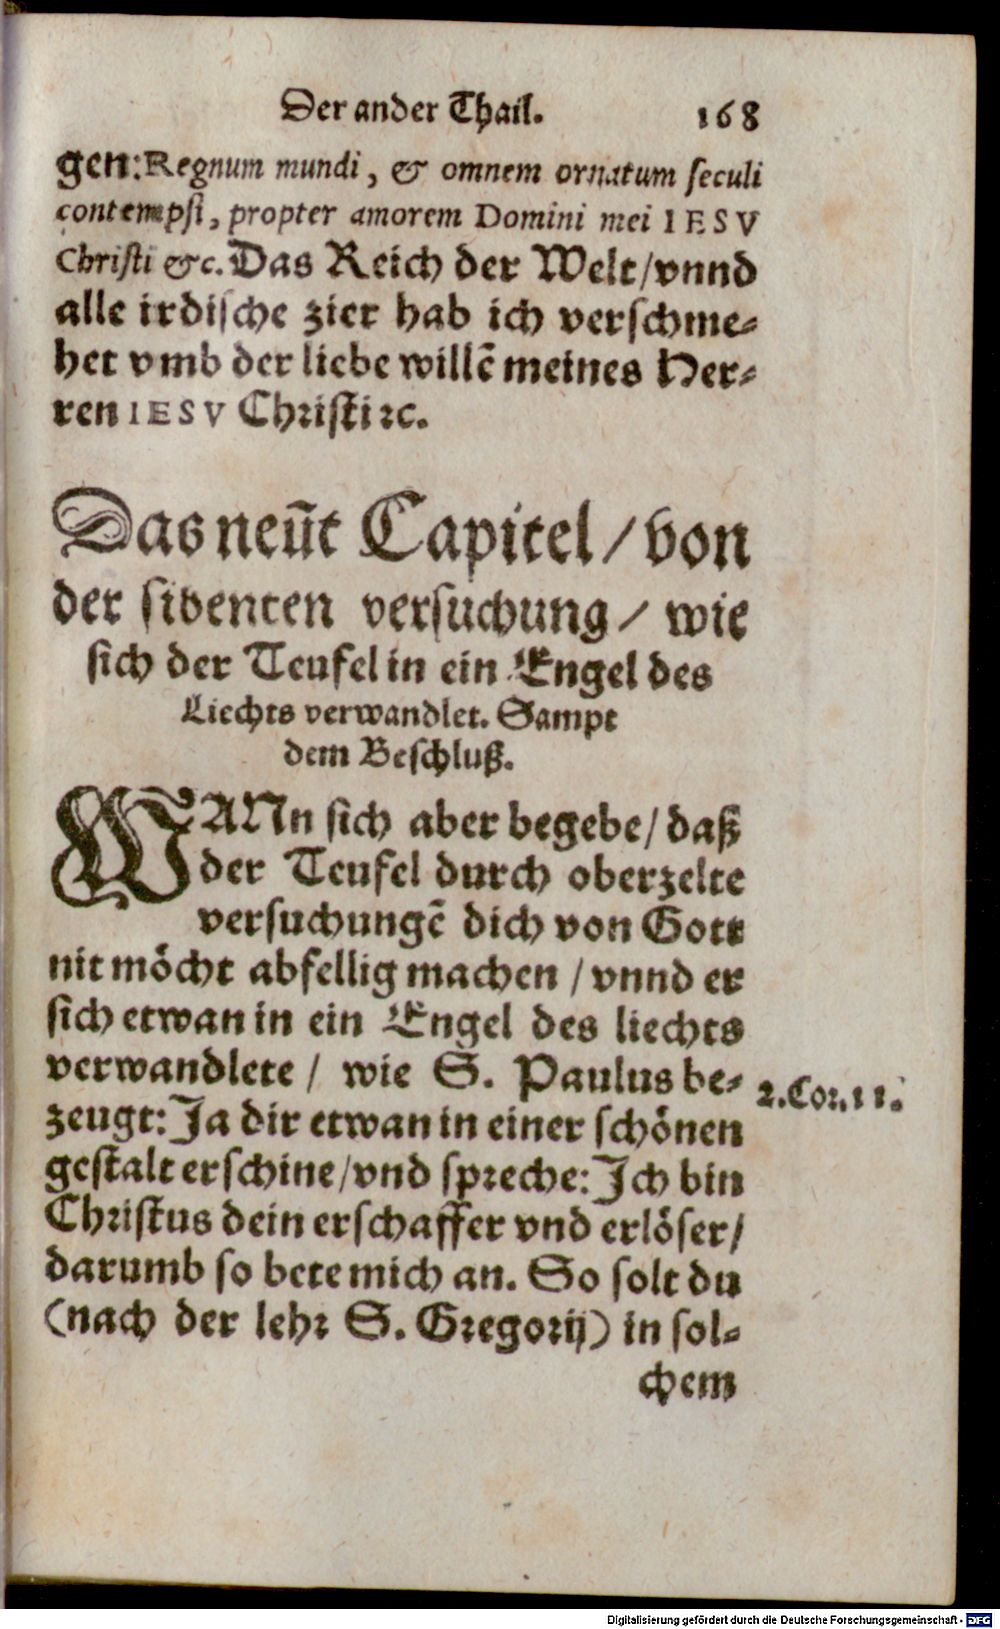 Der ander Thail. 168
gen: Regnum mundi, & omnem ornatum seculi
contempsi, propter amorem Domini mei IESV
Christi &c. Das Reich der Welt/ vnnd
alle irdische zier hab ich verschme⸗
het vmb der liebe willē meines Her⸗
ren IESV Christi ꝛc.
Das neūt Capitel / von
der sibenten versuchung / wie
sich der Teufel in ein Engel des
Liechts verwandlet. Sampt
dem Beschluß.
WANn sich aber begebe/ daß
der Teufel durch oberzelte
versuchungē dich von Gott
nit möcht abfellig machen / vnnd er
sich etwan in ein Engel des liechts
verwandlete / wie S. Paulus be⸗
2.Cor.11.
zeugt: Ja dir etwan in einer schönen
gestalt erschine/ vnd spreche: Ich bin
Christus dein erschaffer vnd erlöser/
darumb so bete mich an. So solt du
(nach der lehr S. Gregorij) in sol⸗
chem
Digitalisierung gefördert durch die Deutsche Forschungsgemeinschaft - DFG